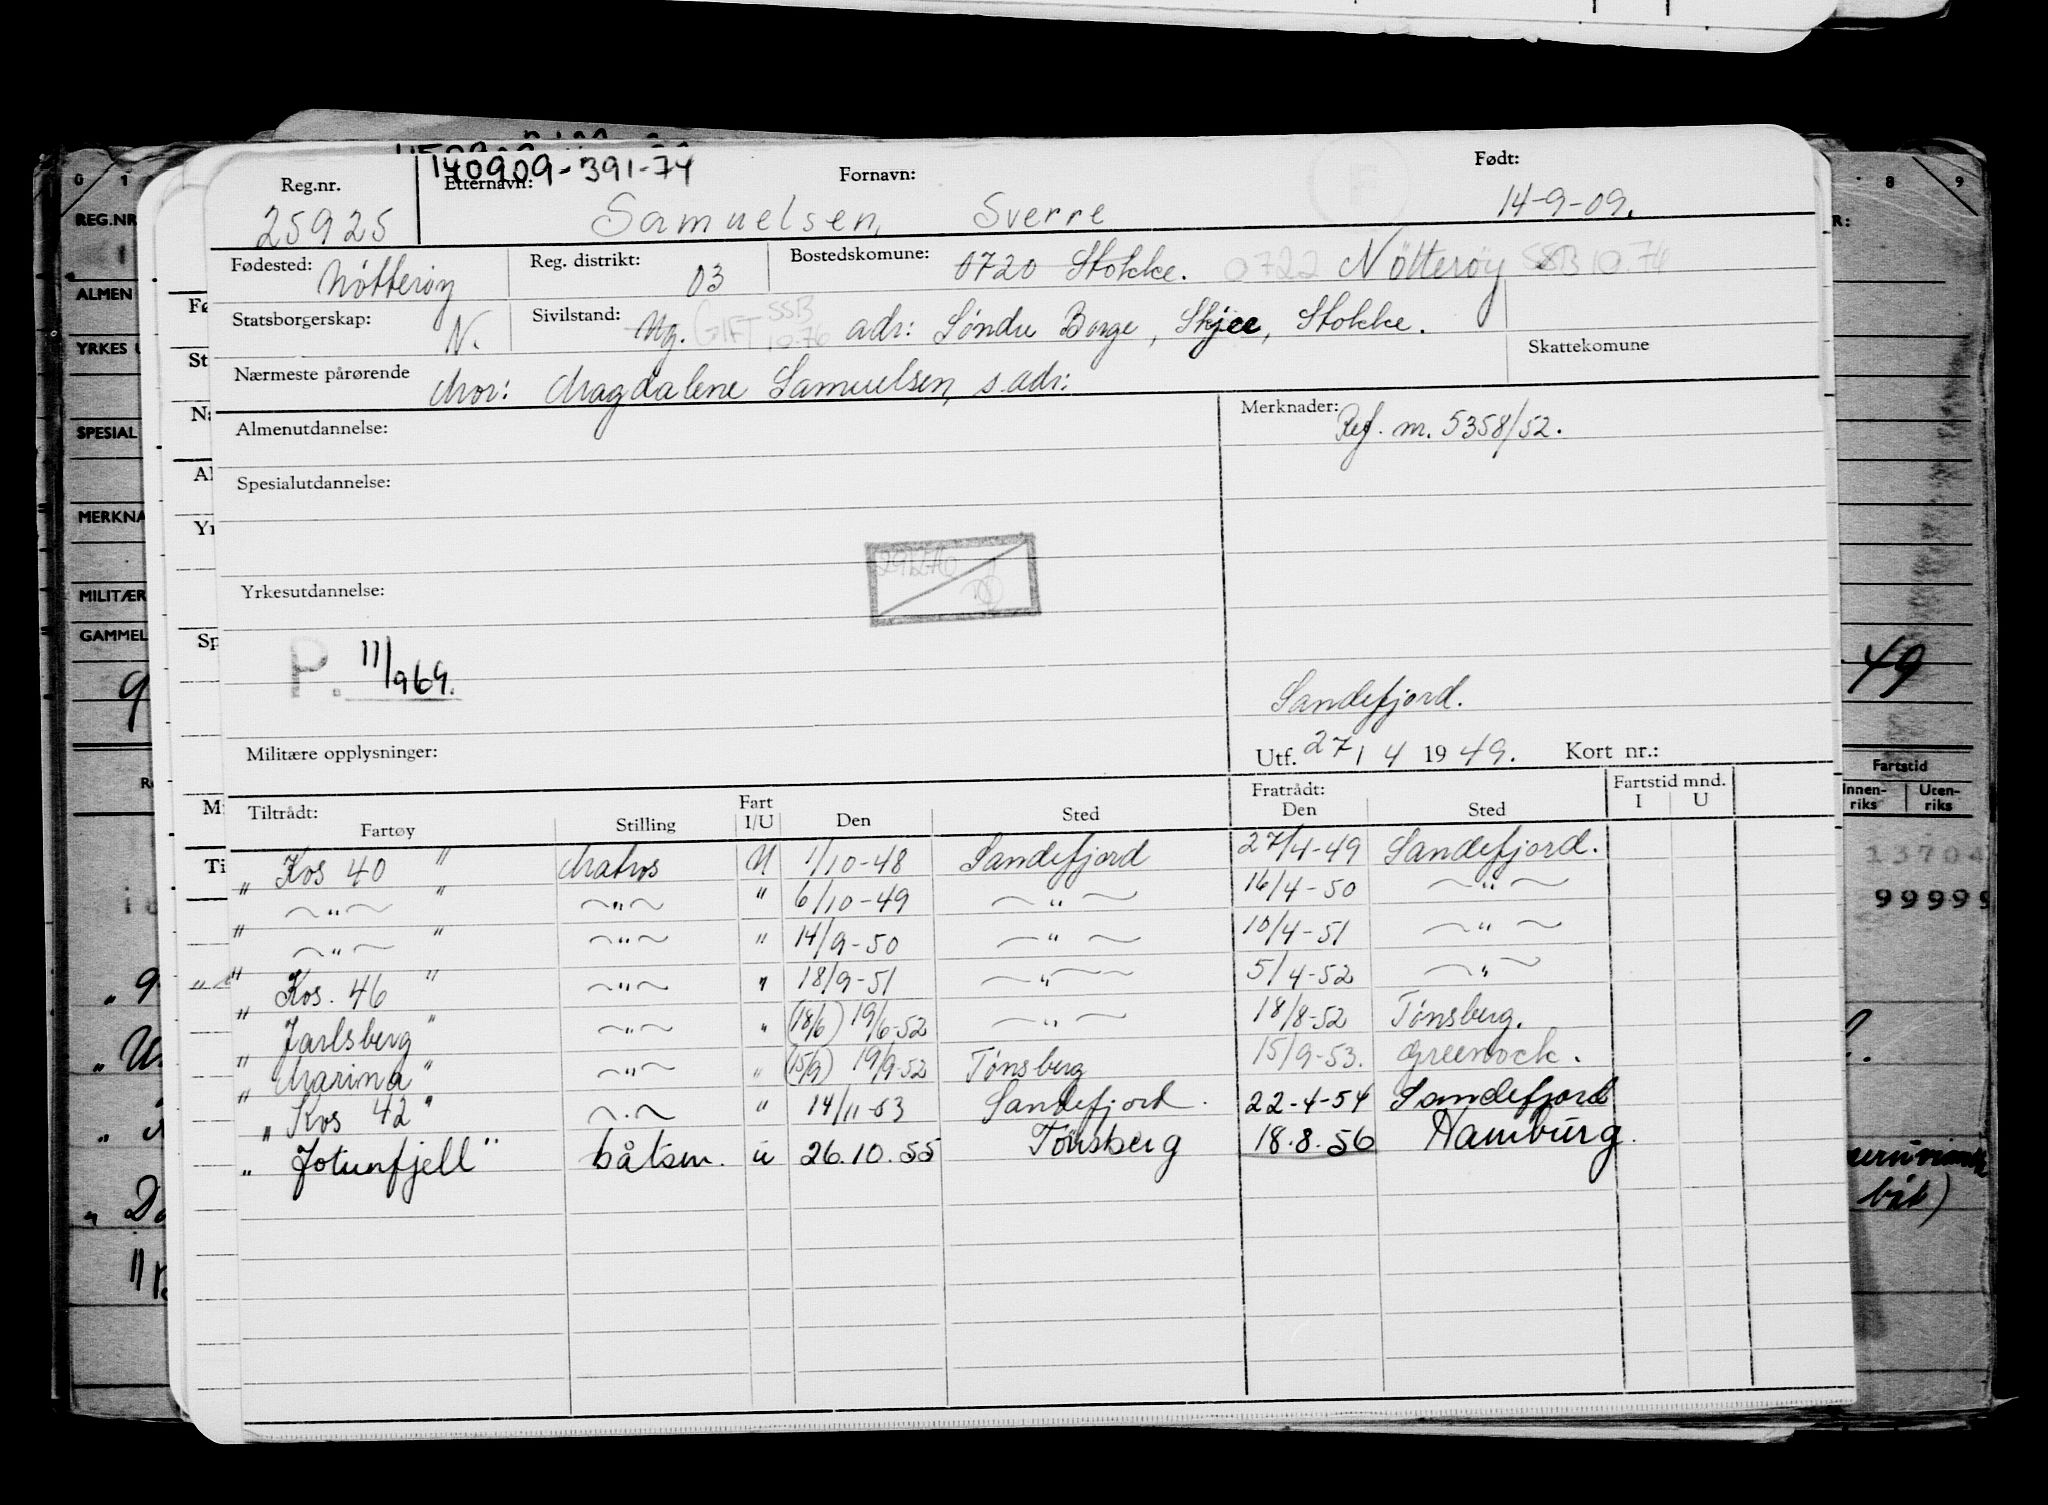 140909-391-74
Reg.nr. Etternavn: Fornavn: Født:
25925 Samuelsen, Sverre 14-9-09.
Fødested: Nötterøy Reg. distrikt: 03 Bostedskomune: 0720 Stokke. 0722 Nötterøy SSB 10.76
Statsborgerskap: N. Sivilstand: Ug. GIFT SSB 10.76 adr: Söndre Borge, Skjee, Stokke.
Skattekomune
Nærmeste pårørende Mor: Magdalene Samuelsen, s. adr:
Almenutdannelse: Merknader: Ref. nr. 5358/52.
Spesialutdannelse:
Yrkesutdannelse:
P. 11/969.
Sandefjord.
Militære opplysninger: Utf. 27/4 1949. Kort nr.:
Tiltrådt: Fratrådt: Fartstid mnd.
Fartøy Stilling Fart I/U Den Sted Den Sted I U
" Kos 40 " Matros U 1/10-48 Sandefjord 27/4-49 Sandefjord.
" ~"~ " ~"~ " 6/10-49 ~"~ 16/4-50 ~"~
" ~"~ " ~"~ " 14/9-50 ~"~ 10/4-51 ~"~
" Kos. 46 " ~"~ " 18/9-51 ~"~ 5/4-52 ~"~
" Jarlsberg " ~"~ " (18/6) 19/6-52 ~"~ 18/8-52 Tønsberg.
" Marima " ~"~ " (15/9) 19/9-52 Tønsberg 15/9-53. Greenock.
" Kos 42 " ~"~ " 14/11-53 Sandefjord. 22-4-54 Sandefjord
" Jotunfjell " båtsm. u 26.10.55 Tönsberg 18.8.56 Hamburg.
REG.NR
ALMEN
YRKES U
SPESIAL
MERKNA
MILITÆR
GAMMEL
49
Fartstid
Innen-riks Uten-riks
13704
99999